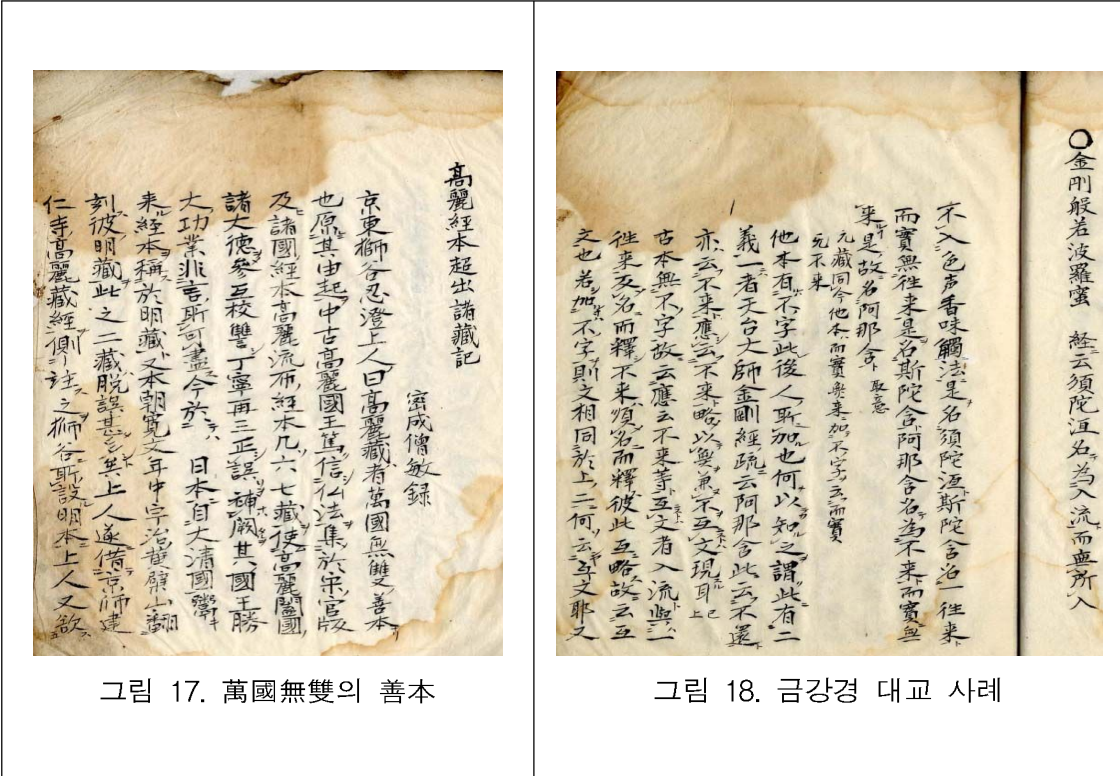 高麗經本超出諸藏記
密成僧敏録
京東獅谷忍澄上人曰高麗藏者萬國無雙善本
也原其由起中古高麗國王篤信仏法集於宋官版
及諸國經本高麗流布經本凡六七藏使高麗闔國
諸大德參互校讐丁寧再三正誤神厥其國王勝
大功業非言所可盡今於 日本自大清國齎
来經本稱於明藏又本朝寛文年中宇治黄檗山翻
刻彼明藏此之二藏脱誤甚多矣上人遂借京師建
仁寺高麗藏經側註之獅谷所設明本上人又欲
그림 17. 萬國無雙의 善本
○金剛般若波羅蜜 経云須陀洹名為入流而無所入
不入色声香味觸法是名須陀洹斯陀含名一往来
而實無往来是名斯陀含阿那含名為不来而實無
来是故名阿那含 取意
元藏同今他本而實無来加不字云而實
无不来
他本有不字此後人所加也何以知之謂此有二
義一者天台大師金剛經疏云阿那含此云不還
亦云不来應云不来略以無兼不互文現耳 已上
古本無不字故云應云不来等互文者入流與一
往来及名而釋不来須名而釋彼此互略故云互
文也若加不字則文相同於上二何云互文耶又
그림 18. 금강경 대교 사례